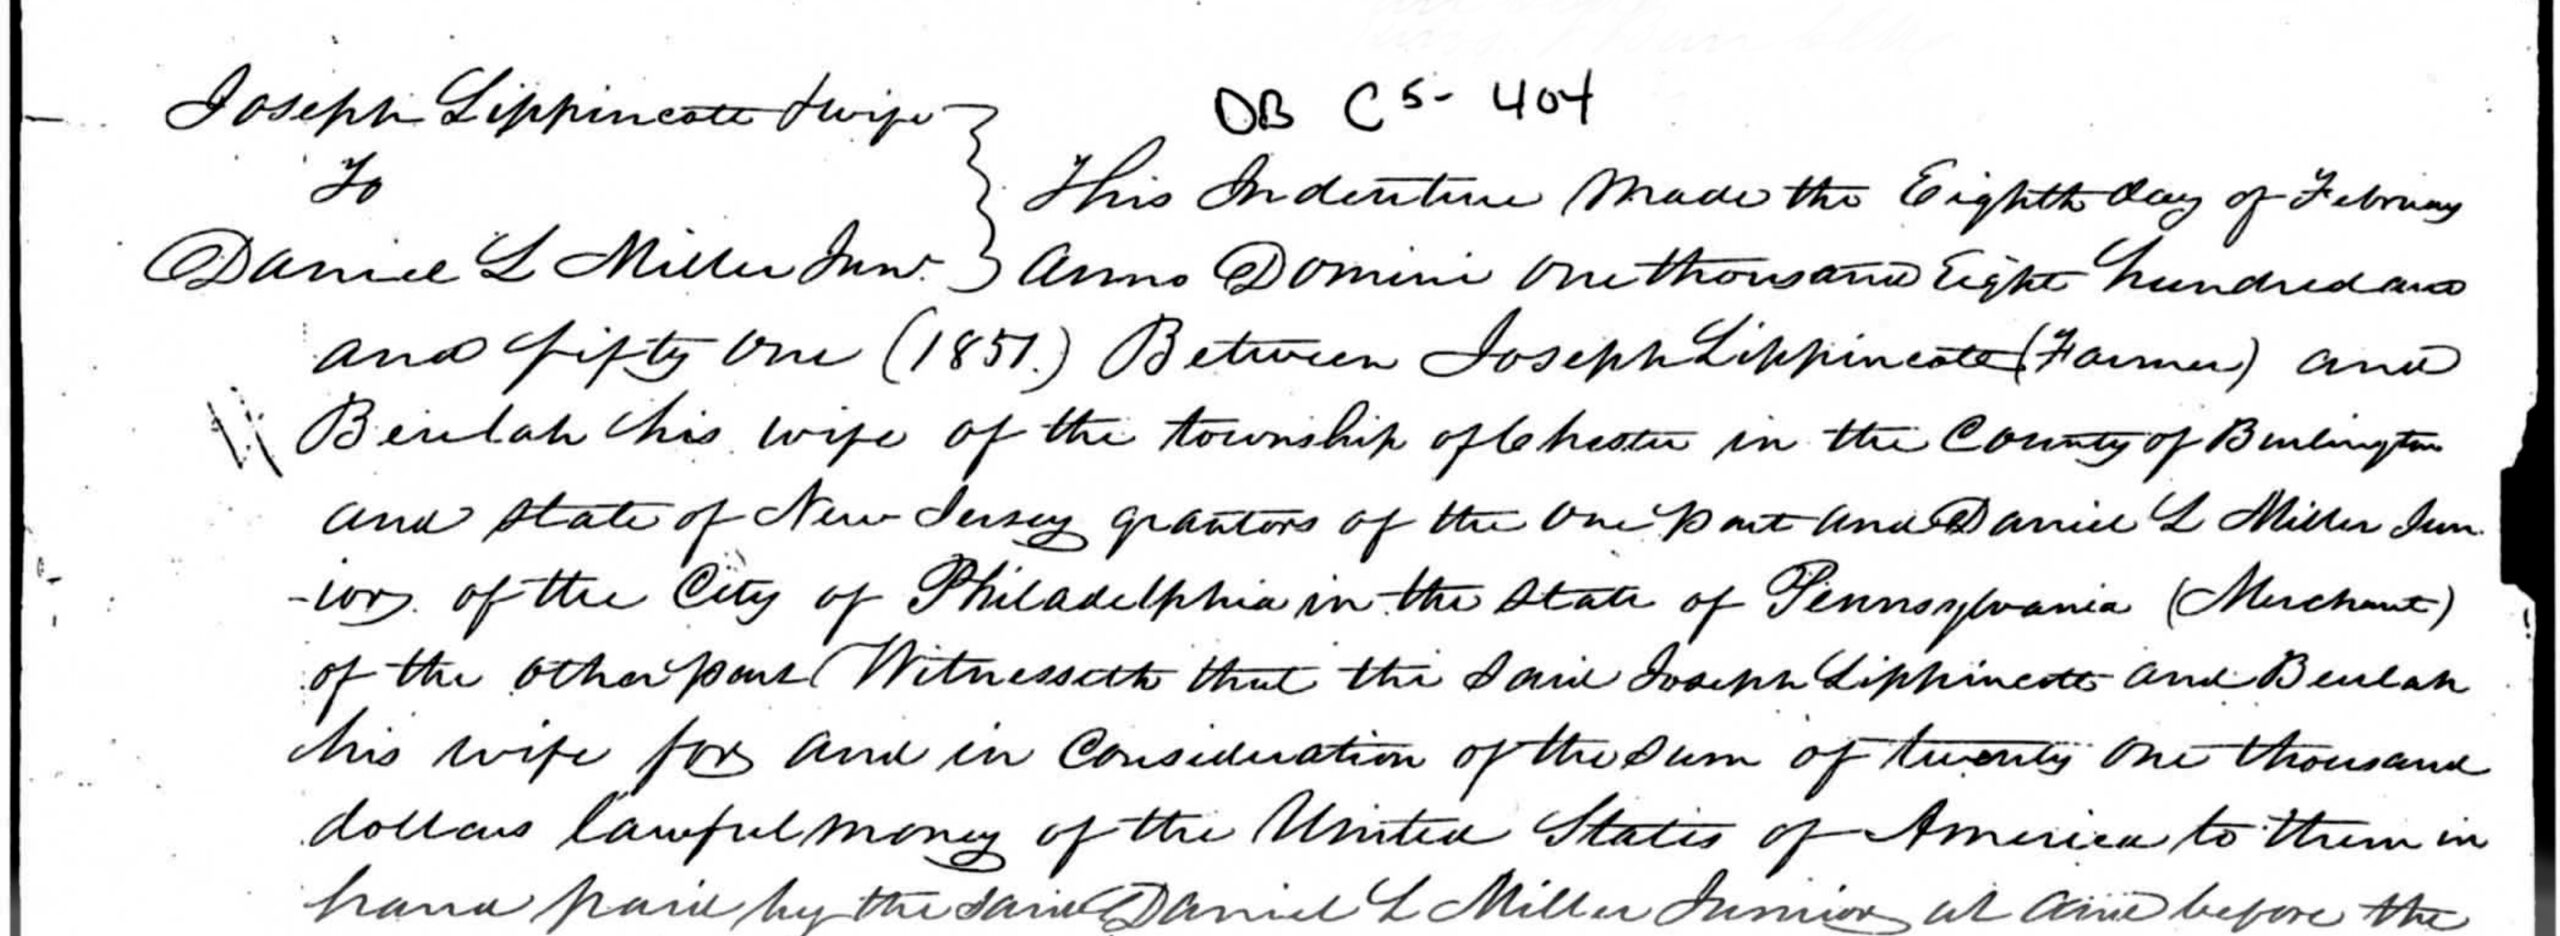 Joseph Lippincott & wife
DB C5- 404
To
This Indenture Made the Eighth day of February
Daniel L Miller Junr.
Anno Domini One thousand Eight hundred and
and fifty One (1851.) Between Joseph Lippincott (Farmer) and
Beulah his wife of the township of Chester in the County of Burlington
and State of New Jersey grantors of the one part and Daniel L Miller Jun
-ior of the City of Philadelphia in the State of Pennsylvania (Merchant)
of the other part Witnesseth that the Said Joseph Lippincott and Beulah
his wife for and in Consideration of the Sum of twenty One thousand
dollars lawful money of the United States of America to them in
hand paid by the Said Daniel L Miller Junior at and before the